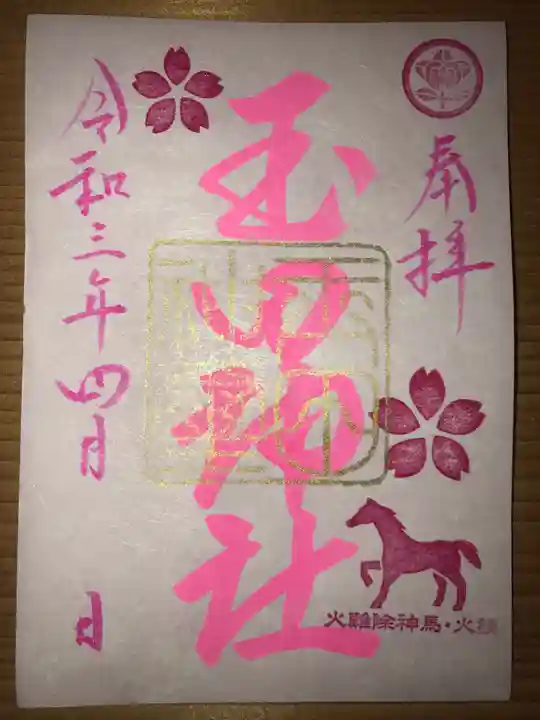 奉拝
玉田神社
令和三年四月 日
火難除神馬・火鎮